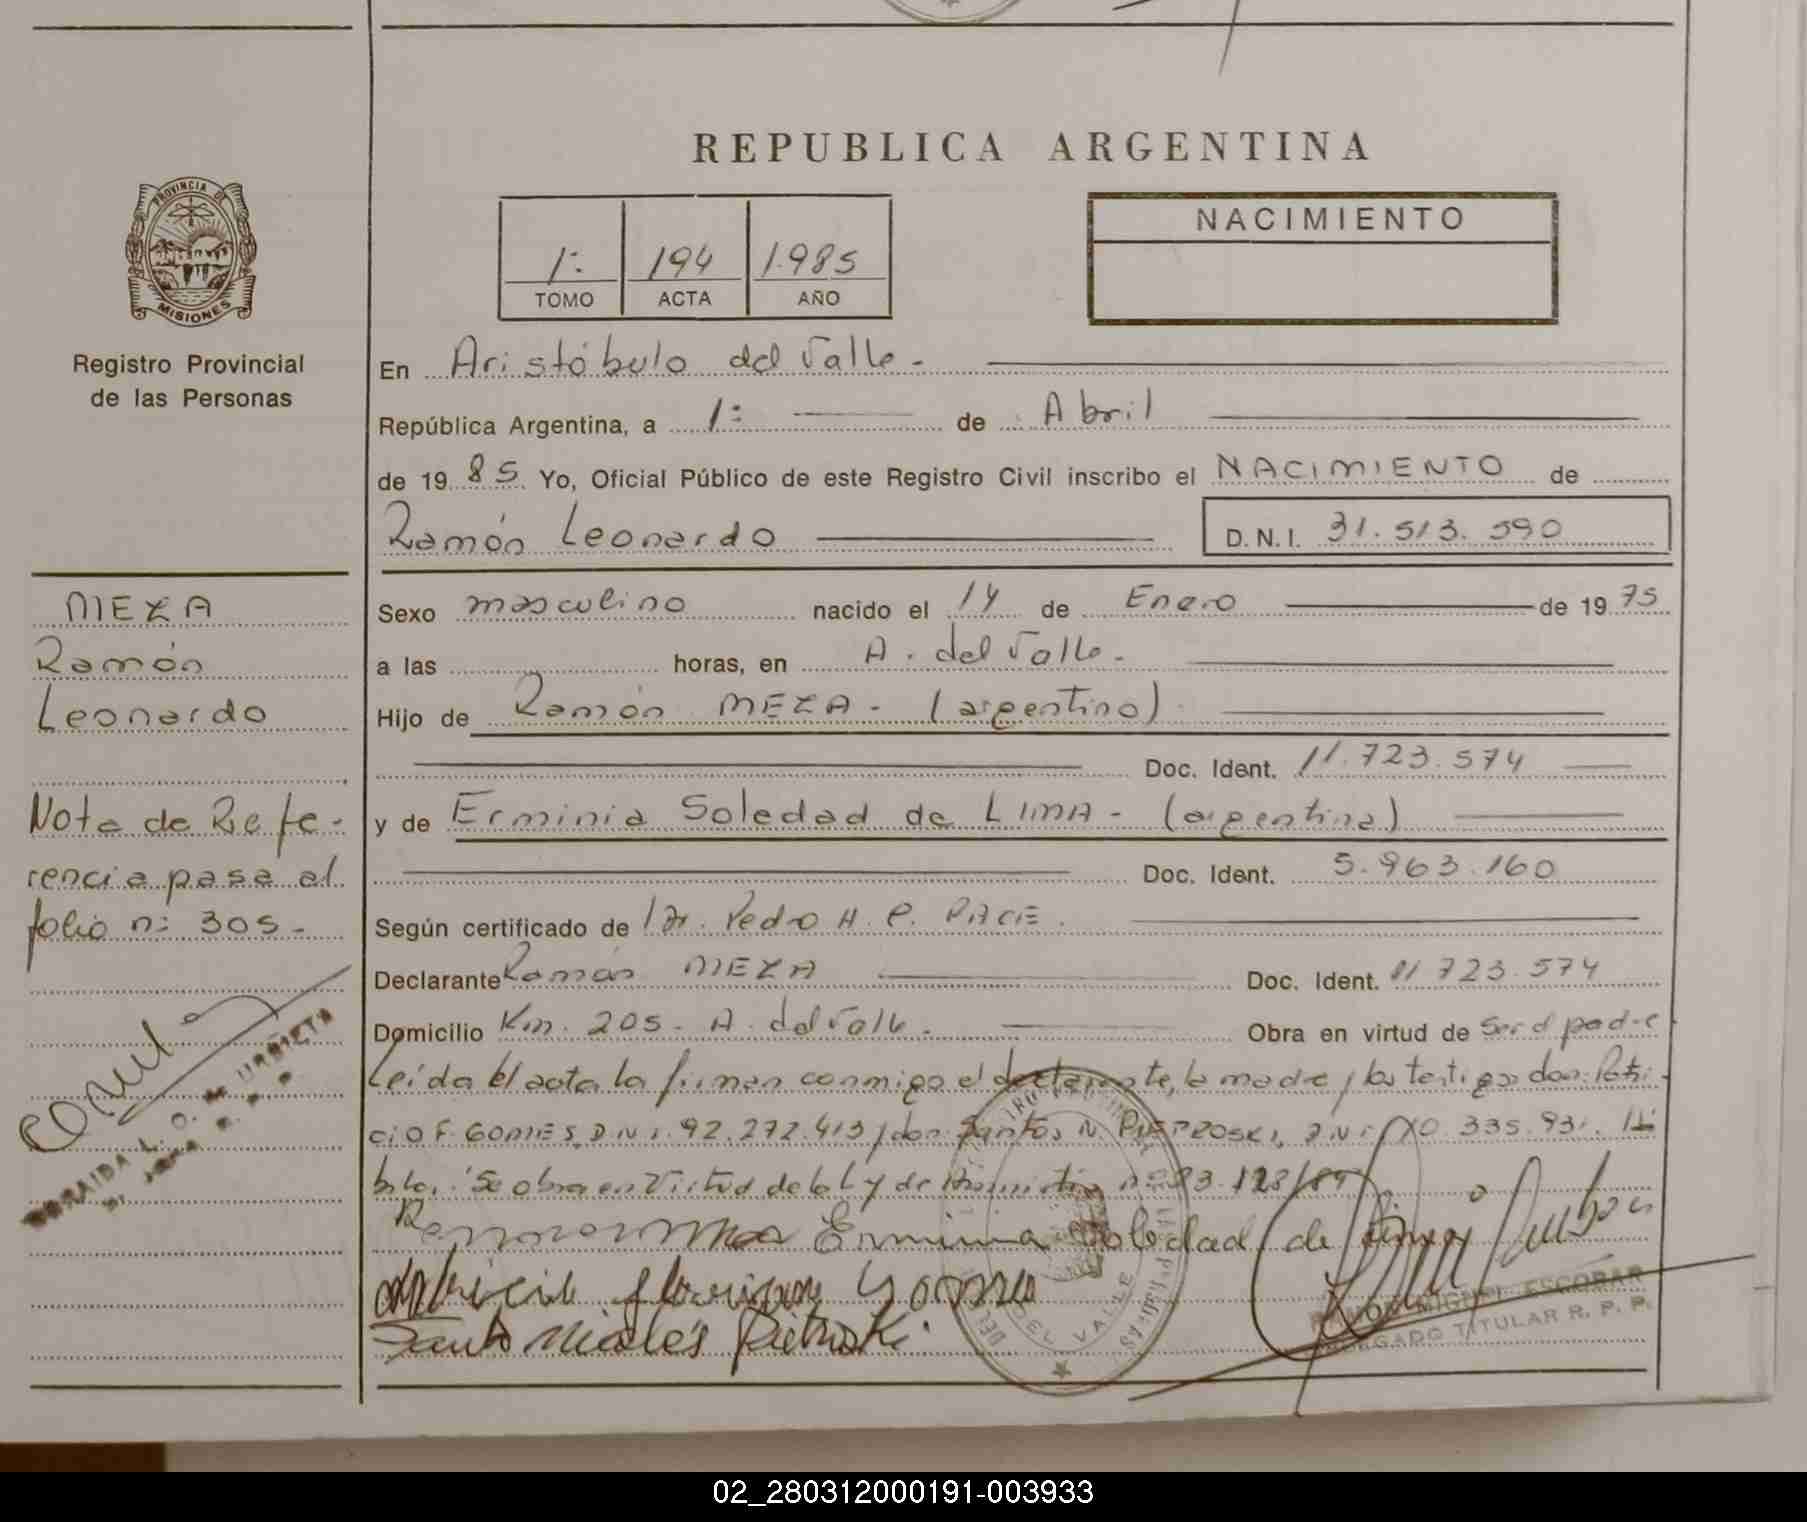 REPUBLICA ARGENTINA
PROVINCIA DE
MISIONES
Registro Provincial
de las Personas
1º 194 1.985
TOMO ACTA AÑO
NACIMIENTO
En Aristóbulo del Valle.
República Argentina, a 1º de Abril
de 1985 Yo, Oficial Público de este Registro Civil inscribo el NACIMIENTO de
Ramón Leonardo D.N.I. 31.513.590
MEZA
Ramón
Leonardo
Nota de Refe-
rencia pasa al
folio nº 305.
Sexo masculino nacido el 14 de Enero de 1975
a las horas, en A. del Valle.
Hijo de Ramón MEZA - (argentino)
Doc. Ident. 11.723.574
y de Erminia Soledad de LIMA - (argentina)
Doc. Ident. 5.963.160
Según certificado de Dr. Pedro H. C. PACE.
Declarante Ramón MEZA Doc. Ident. 11 723.574
Domicilio Km. 205 - A. del Valle. Obra en virtud de ser el padre
Leída el acta la firman conmigo el declarante, la madre y los testigos don Patri-
cio F. GOMES, D.N.I. 92.272.413 y don Santos N. PIETROSKI, D.N.I.
Se obra en virtud de la Ley de Amnistía
Erminia Soledad de Lima
Santo Nicolés Pietroski.
L. O. de URRIETA
RAMON MIGUEL ESCOBAR
DELEGADO TITULAR R. P. P.
DEL VALLE
02_280312000191-003933